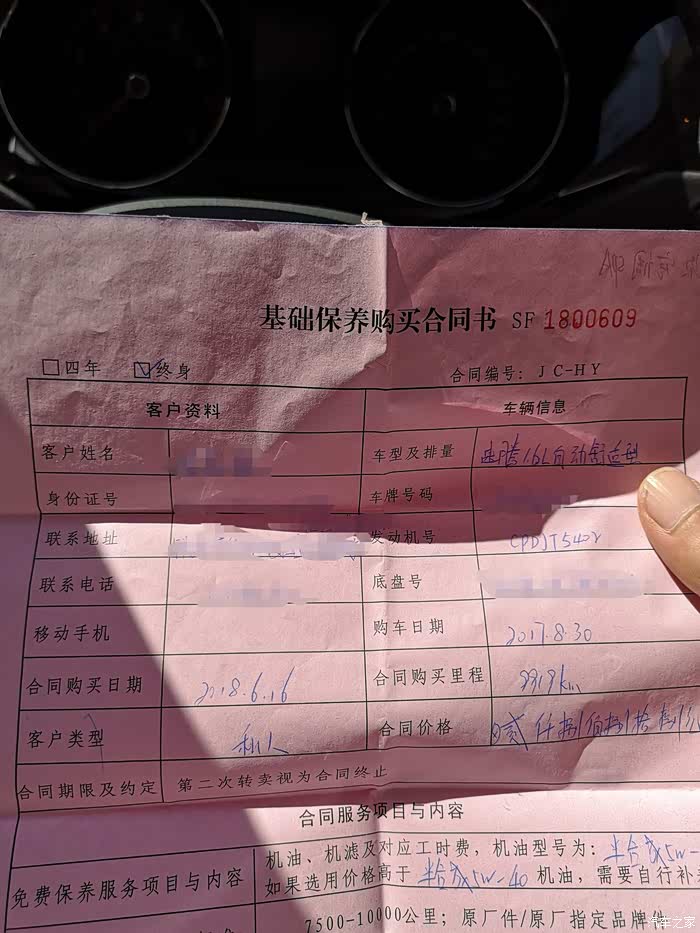 基础保养购买合同书 SF 1800609
四年 终身 合同编号: JC-HY
客户资料 车辆信息
客户姓名 车型及排量 速腾1.6L自动舒适型
身份证号 车牌号码
联系地址 发动机号 CPDJT5402
联系电话 底盘号
移动手机 购车日期 2017.8.30
合同购买日期 2018.6.16 合同购买里程 9919km
客户类型 私人 合同价格 贰仟捌佰捌拾捌
合同期限及约定 第二次转卖视为合同终止
合同服务项目与内容
免费保养服务项目与内容
机油、机滤及对应工时费，机油型号为: 半合成5W-
如果选用价格高于 半合成5W-40 机油，需要自行补
7500-10000公里; 原厂件/原厂指定品牌件
汽车之家